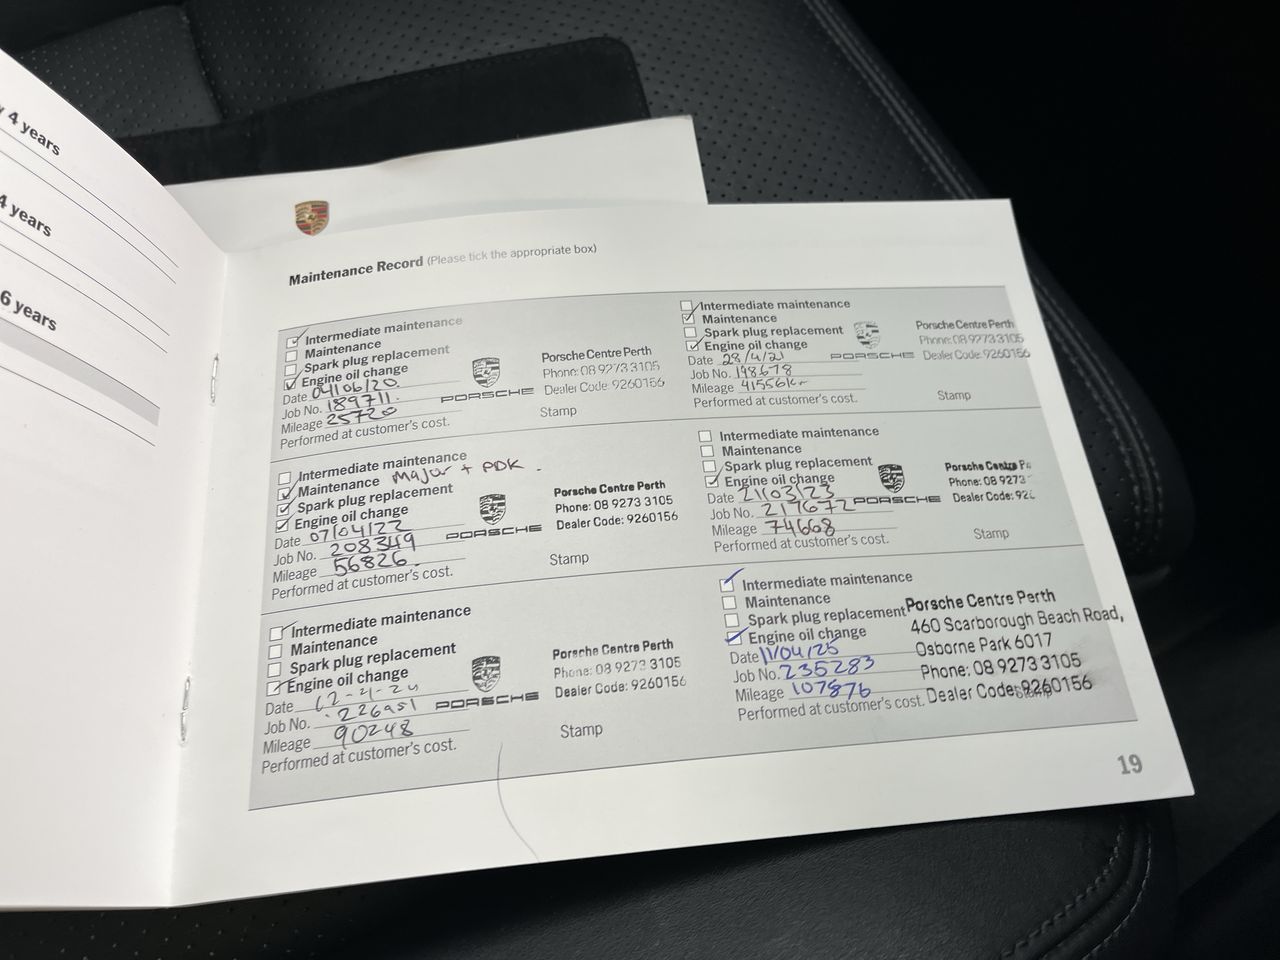 y 4 years
4 years
6 years
Maintenance Record (Please tick the appropriate box)
Intermediate maintenance
Maintenance
Spark plug replacement
Engine oil change
Date 04/06/20
Job No. 189711.
Mileage 25720
Performed at customer's cost.
PORSCHE
Porsche Centre Perth
Phone: 08 9273 3105
Dealer Code: 9260156
Stamp
Intermediate maintenance
Maintenance
Spark plug replacement
Engine oil change
Date 28/4/21
Job No. 198678
Mileage 41556km
Performed at customer's cost.
PORSCHE
Porsche Centre Perth
Phone: 08 9273 3105
Dealer Code: 9260156
Stamp
Intermediate maintenance
Maintenance Major + PDK.
Spark plug replacement
Engine oil change
Date 07/04/22
Job No. 208349
Mileage 56826.
Performed at customer's cost.
PORSCHE
Porsche Centre Perth
Phone: 08 9273 3105
Dealer Code: 9260156
Stamp
Intermediate maintenance
Maintenance
Spark plug replacement
Engine oil change
Date 21/03/23
Job No. 217672
Mileage 74668
Performed at customer's cost.
PORSCHE
Porsche Centre Pe
Phone: 08 9273
Dealer Code: 926
Stamp
Intermediate maintenance
Maintenance
Spark plug replacement
Engine oil change
Date 12-4-24
Job No. 226951
Mileage 90248
Performed at customer's cost.
PORSCHE
Porsche Centre Perth
Phone: 08 9273 3105
Dealer Code: 9260156
Stamp
Intermediate maintenance
Maintenance
Spark plug replacement
Engine oil change
Date 11/04/25
Job No. 235283
Mileage 107876
Performed at customer's cost.
Porsche Centre Perth
460 Scarborough Beach Road,
Osborne Park 6017
Phone: 08 9273 3105
Dealer Code: 9260156
Stamp
19